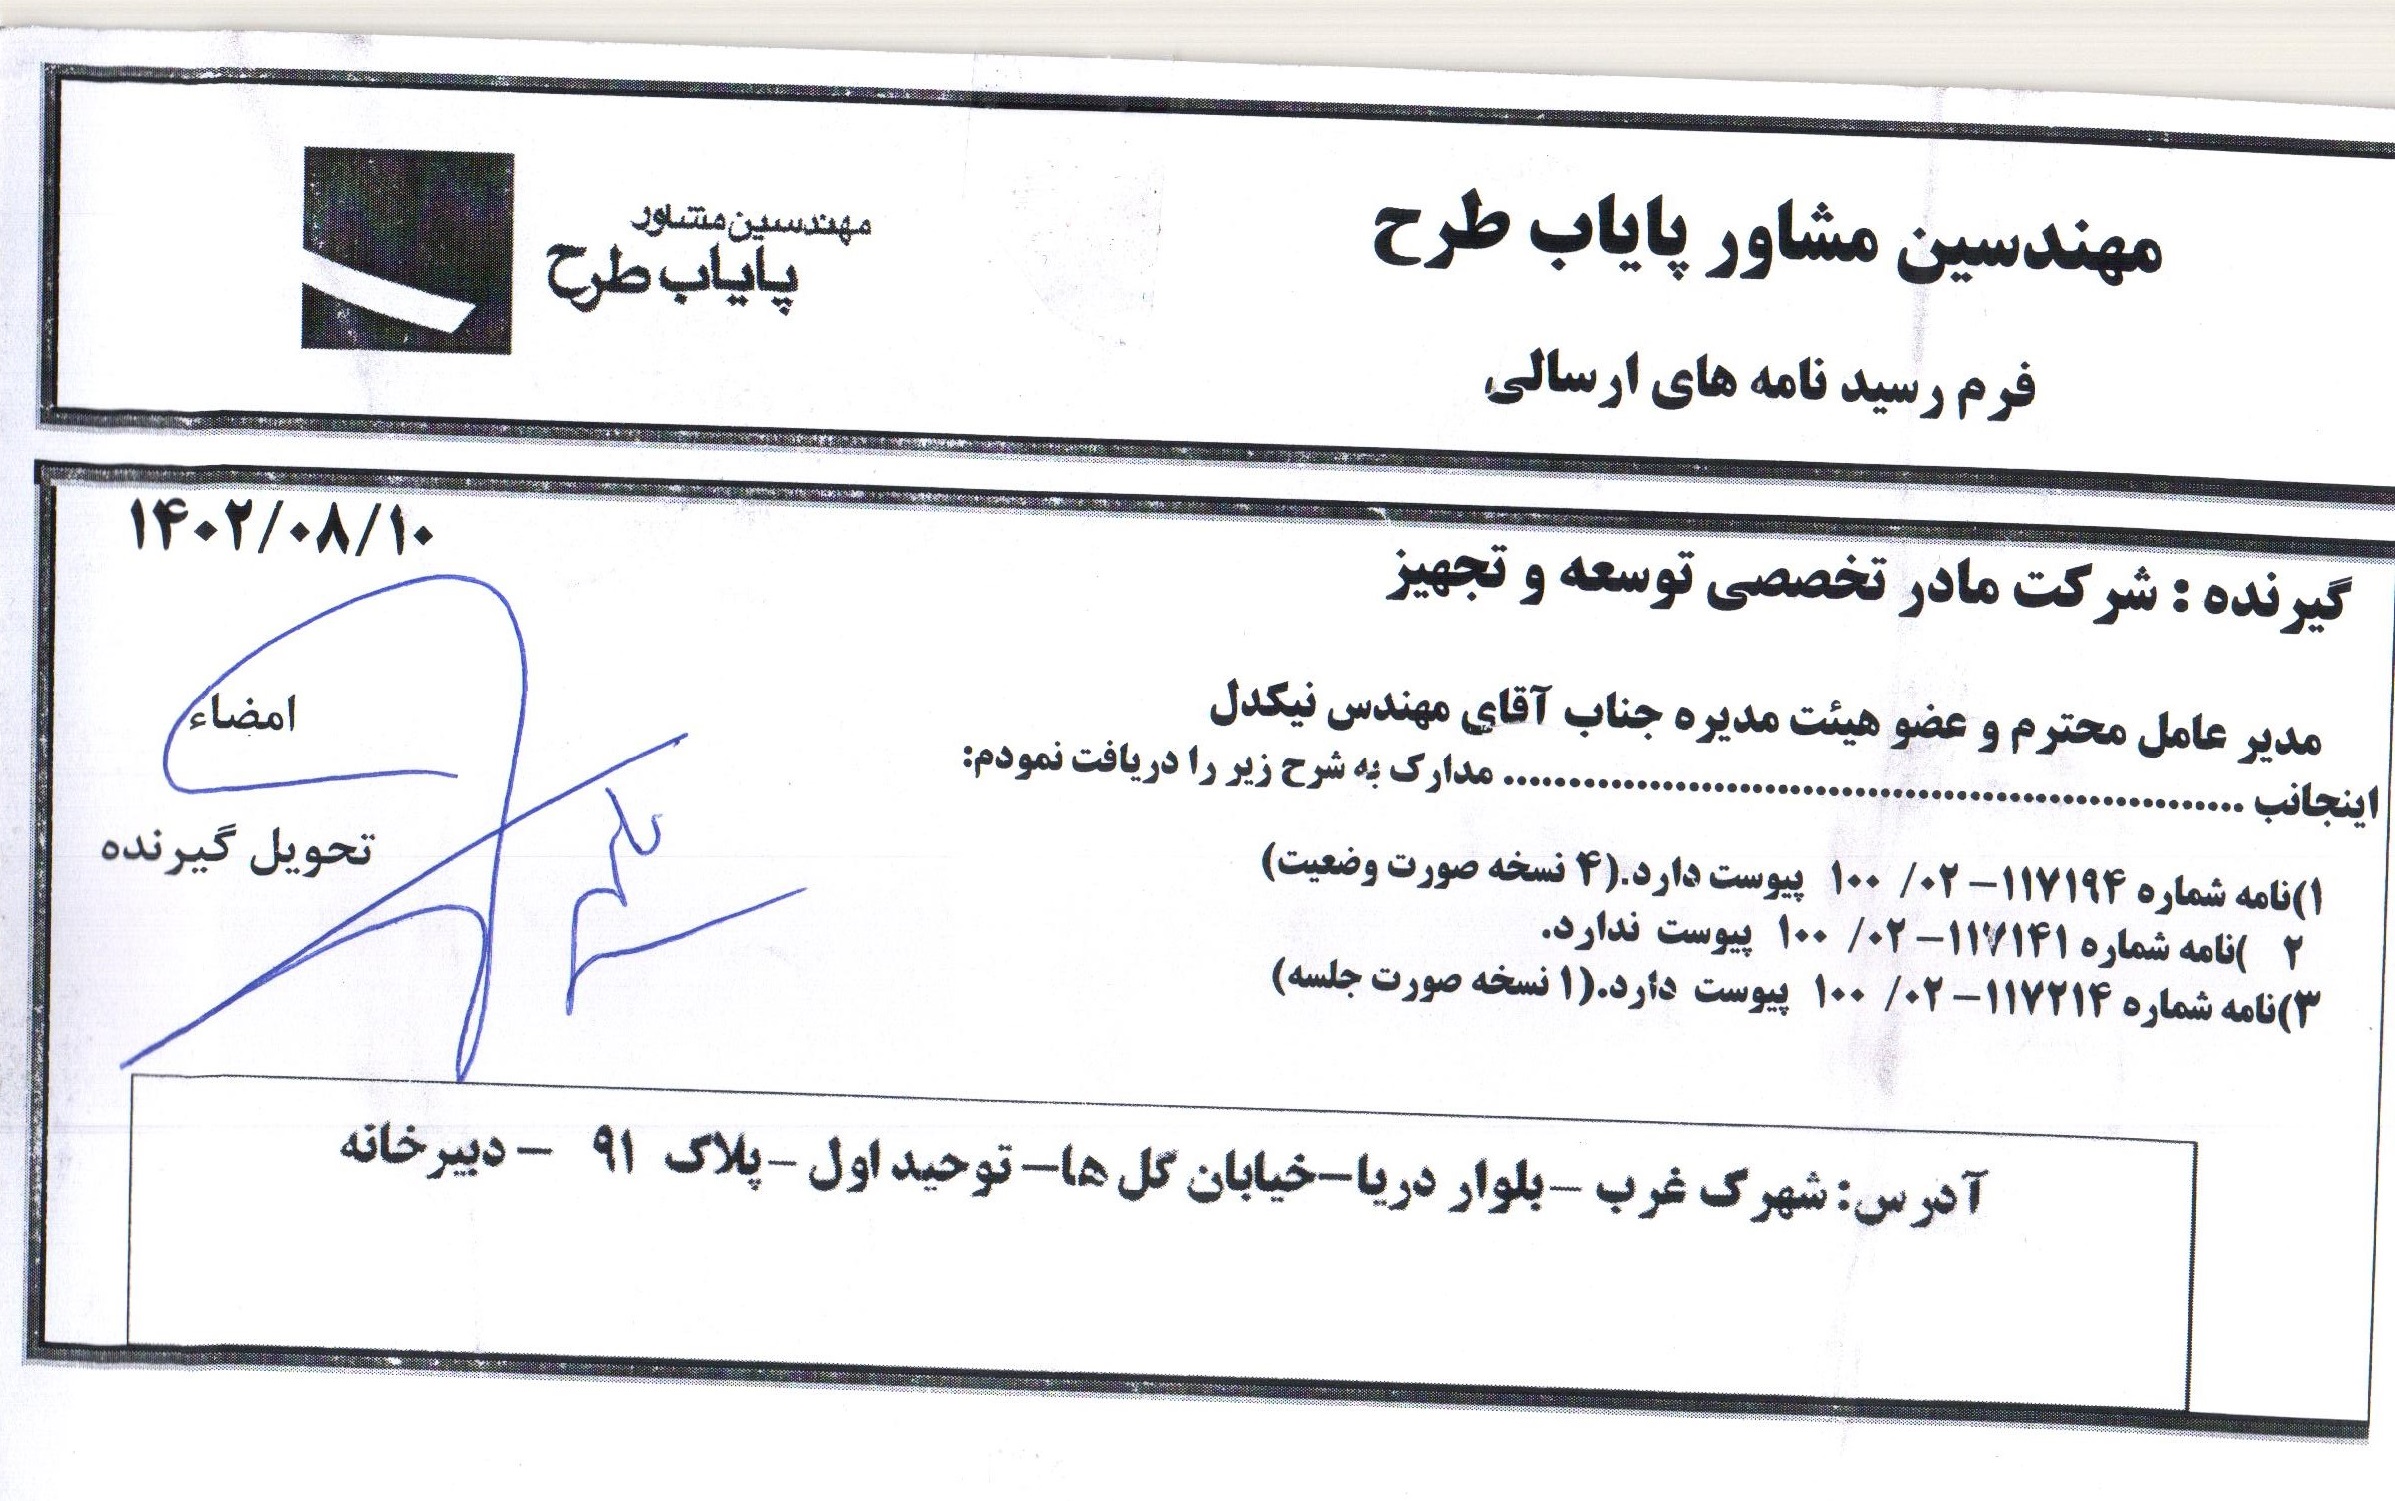 مهندسین مشاور پایاب طرح
مهندسین مشاور
پایاب طرح
فرم رسید نامه های ارسالی
۱۴۰۲/۰۸/۱۰
گیرنده : شرکت مادر تخصصی توسعه و تجهیز
مدیر عامل محترم و عضو هیئت مدیره جناب آقای مهندس نیکدل
امضاء
اینجانب ........................................................ مدارک به شرح زیر را دریافت نمودم:
تحویل گیرنده
۱)نامه شماره ۱۱۷۱۹۴– ۰۲/ ۱۰۰ پیوست دارد.(۴ نسخه صورت وضعیت)
۲ )نامه شماره ۱۱۷۱۴۱– ۰۲/ ۱۰۰ پیوست ندارد.
۳)نامه شماره ۱۱۷۲۱۴– ۰۲/ ۱۰۰ پیوست دارد.(۱ نسخه صورت جلسه)
آدرس: شهرک غرب –بلوار دریا–خیابان گل ها– توحید اول –پلاک ۹۱ – دبیرخانه